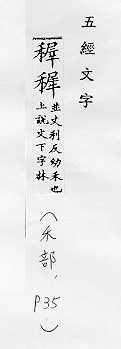 五經文字
稺穉
並丈利反幼禾也
上說文下字林
(禾部, P35)